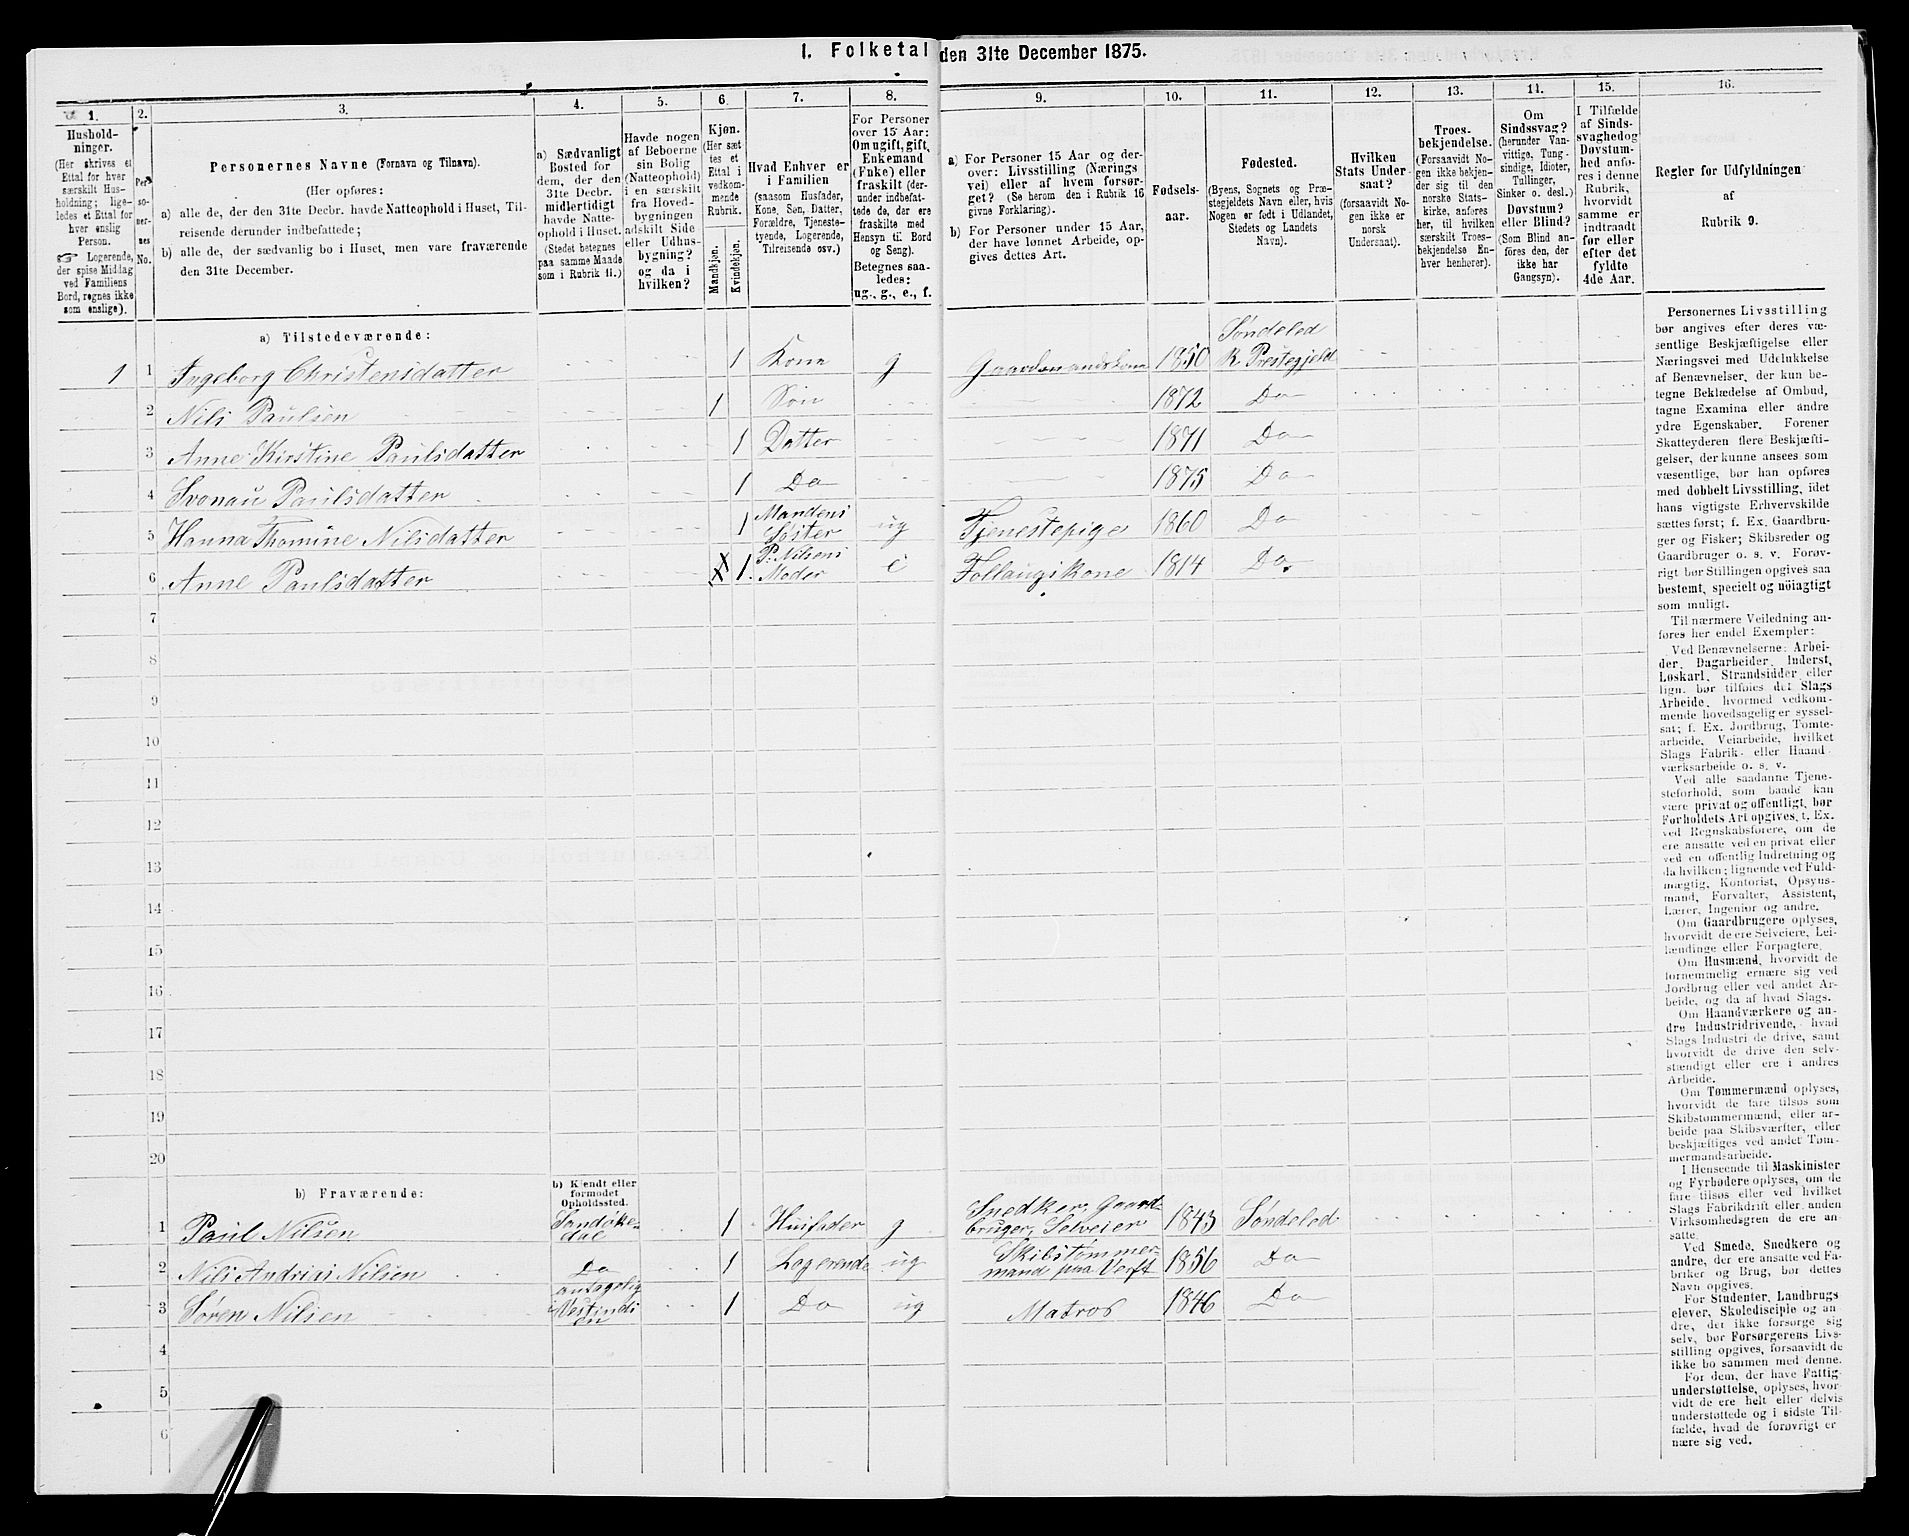 1. Folketal den 31te December 1875.
1. 2. 3. 4. 5. 6. 7. 8. 9. 10. 11. 12. 13. 14. 15. 16.
Hushold-
ninger.
(Her skrives et
Ettal for hver
særskilt Hus-
holdning; lige-
ledes et Ettal for
hver enslig
Person.
☞ Logerende,
der spise Middag
ved Familiens
Bord, regnes ikke
som enslige).
Per
so-
ner-
nes
No.
Personernes Navne (Fornavn og Tilnavn).
(Her opføres:
a) alle de, der den 31te Decbr. havde Natteophold i Huset, Til-
reisende derunder indbefattede;
b) alle de, der sædvanlig bo i Huset, men vare fraværende
den 31te December.
a) Sædvanligt
Bosted for
dem, der den
31te Decbr.
midlertidigt
havde Natte-
ophold i Huset.
(Stedet betegnes
paa samme Maade
som i Rubrik 11.)
Havde nogen
af Beboerne
sin Bolig
(Natteophold)
i en særskilt
fra Hoved-
bygningen
adskilt Side
eller Udhus-
bygning?
og da i
hvilken?
Kjøn.
(Her sæt
tes et
Ettal i
vedkom-
mende
Rubrik.
Mandkjøn.
Kvindekjøn.
Hvad Enhver er
i Familien
(saasom Husfader,
Kone, Søn, Datter,
Forældre, Tjeneste-
tyende, Logerende,
Tilreisende osv.)
For Personer
over 15 Aar:
Om ugift, gift,
Enkemand
(Enke) eller
fraskilt (der-
under indbefat-
tede de, der ere
fraskilte med
Hensyn til Bord
og Seng).
Betegnes saa-
ledes:
ug., g., e., f.
a) For Personer 15 Aar og der-
over: Livsstilling (Nærings
vei) eller af hvem forsør-
get? (Se herom den i Rubrik 16
givne Forklaring).
b) For Personer under 15 Aar,
der have lønnet Arbeide, op-
gives dettes Art.
Fødsels-
aar.
Fødested.
(Byens, Sognets og Præ-
stegjeldets Navn eller, hvis
Nogen er født i Udlandet,
Stedets og Landets
Navn).
Hvilken
Stats Under-
saat?
(forsaavidt No-
gen ikke er
norsk
Undersaat).
Troes-
bekjendelse.
(Forsaavidt No-
gen ikke bekjen-
der sig til den
norske Stats-
kirke, anføres
her, til hvilken
særskilt Troes-
bekjendelse En-
hver henhører).
Om
Sindssvag?
(herunder Van-
vittige, Tung-
sindige, Idioter,
Tullinger,
Sinker o. desl.)
Døvstum?
eller Blind?
(Som Blind an-
føres den, der
ikke har
Gangsyn).
I Tilfælde
af Sinds-
svaghed og
Døvstum-
hed anfø-
res i denne
Rubrik,
hvorvidt
samme er
indtraadt
før eller
efter det
fyldte
4de Aar.
Regler for Udfyldningen
af
Rubrik 9.
a) Tilstedeværende:
1 1 Ingeborg Christensdatter 1 Kone g Gaardmandskone 1850 Søndeled
R. Prestegjeld
2 Nils Paulsen 1 Søn 1872 Do
3 Anne Kirstine Paulsdatter 1 Datter 1871 Do
4 Paulsdatter 1 Do 1875 Do
5 Hanna Thomine Nilsdatter 1 Mandens
Søster ug Tjenestepige 1860 Do
6 Anne Paulsdatter 1 P. Nilsens
Moder e Follaugskone 1814 Do
7
8
9
10
11
12
13
14
15
16
17
18
19
20
b) Fraværende:
b) Kjendt eller
formodet
Opholdssted.
1 Paul Nilsen Sandøke-
dal 1 Husfader g Snedker, Gaard-
bruger, Selveier 1843 Søndeled
2 Nils Andrias Nilsen Do 1 Logerende ug Skibstømmer-
mand paa Verft 1856 Do
3 Søren Nilsen antagelig
Vestindi
en 1 Do ug Matros 1846 Do
4
5
6
Personernes Livsstilling
bør angives efter deres væ-
sentlige Beskjæftigelse eller
Næringsvei med Udelukkelse
af Benævnelser, der kun be-
tegne Beklædelse af Ombud,
tagne Examina eller andre
ydre Egenskaber. Forener
Skatteyderen flere Beskjæfti-
gelser, der kunne ansees som
væsentlige, bør han opføres
med dobbelt Livsstilling, idet
hans vigtigste Erhvervskilde
sættes først; f. Ex. Gaardbru-
ger og Fisker; Skibsreder og
Gaardbruger o. s. v. Forøv-
rigt bør Stillingen opgives saa
bestemt, specielt og nøiagtigt
som muligt.
Til nærmere Veiledning an-
føres her endel Exempler:
Ved Benævnelserne: Arbei-
der, Dagarbeider, Inderst,
Løskarl, Strandsidder eller
lign. bør tilføies det Slags
Arbeide, hvormed vedkom-
mende hovedsagelig er syssel-
sat; f. Ex. Jordbrug, Tomte-
arbeide, Veiarbeide, hvilket
Slags Fabrik- eller Haand-
værksarbeide o. s. v.
Ved alle saadanne Tjene-
steforhold, som baade kan
være privat og offentligt, bør
Forholdets Art opgives, t. Ex.
ved Regnskabsførere, om de
ere ansatte ved en privat eller
ved en offentlig Indretning og
da hvilken; lignende ved Fuld-
mægtig, Kontorist, Opsyns-
mand, Forvalter, Assistent,
Lærer, Ingeniør og andre.
Om Gaardbrugere oplyses,
hvorvidt de ere Selveiere, Lei-
lændinge eller Forpagtere.
Om Husmænd, hvorvidt de
fornemmelig ernære sig ved
Jordbrug eller ved andet Ar-
beide, og da af hvad Slags.
Om Haandværkere og an-
dre Industridrivende, hvad
Slags Industri de drive, samt
hvorvidt de drive den selv-
stændigt eller ere i andres
Arbeide.
Om Tømmermænd oplyses,
hvorvidt de fare tilsøs som
Skibstømmermænd, eller ar-
beide paa Skibsværfter, eller
beskjæftiges ved andet Tøm-
mermandsarbeide.
I Henseende til Maskinister
og Fyrbødere oplyses, om de
fare tilsøs eller ved hvilket
Slags Fabrikdrift eller anden
Virksomhedsgren de ere an-
satte.
Ved Smede, Snedkere og
andre, der ere ansatte ved Fa-
briker og Brug, bør dettes
Navn opgives.
For Studenter, Landbrugs
elever, Skoledisciple og an-
dre, der ikke forsørge sig
selv, bør Forsørgerens Livs-
stilling opgives, forsaavidt de
ikke bo sammen med denne.
For dem, der have Fattig-
understøttelse, oplyses, hvor-
vidt de ere helt eller delvis
understøttede og i sidste Til-
fælde, hvad de forøvrigt er
nære sig ved.